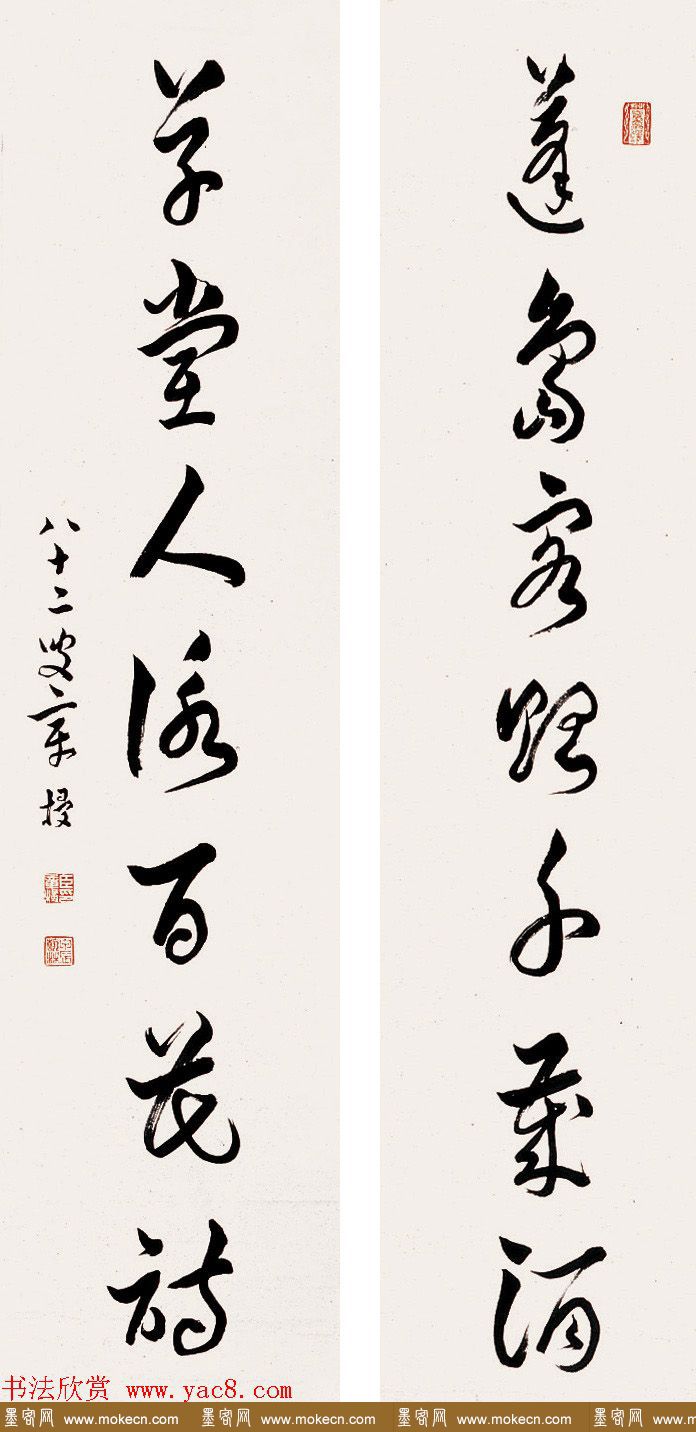 蓬島客千歲酒
草堂人詠百花詩
八十二叟章梫
书法欣赏 www.yac8.com
墨客网 www.mokecn.com 墨客网 www.mokecn.com 墨客网 www.mokecn.com 墨客网 www.mokecn.com